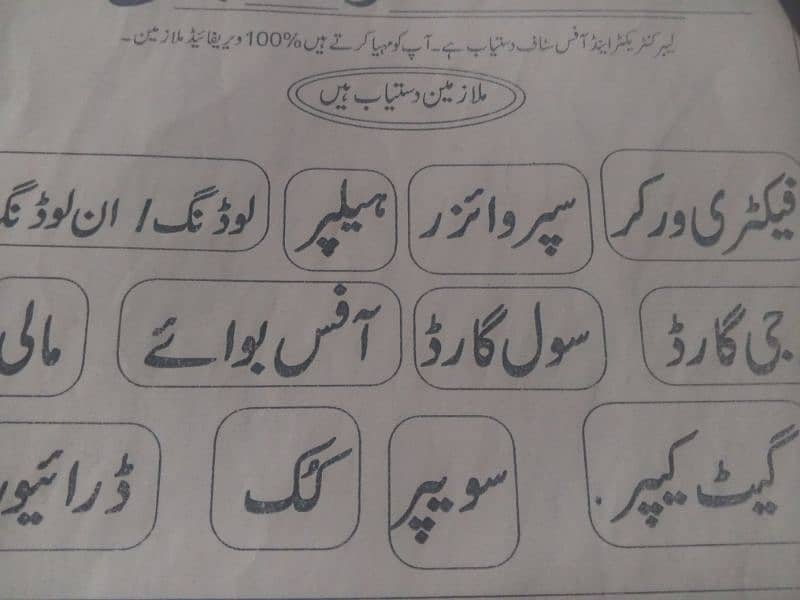 لیبر کنٹریکٹر اینڈ آفس سٹاف دستیاب ہے۔ آپ کو مہیا کرتے ہیں %100 ویریفائیڈ ملازمین۔
ملازمین دستیاب ہیں
فیکٹری ورکر سپروائزر ہیلپر لوڈنگ / ان لوڈنگ
جی گارڈ سول گارڈ آفس بوائے مالی
گیٹ کیپر۔ سویپر کُک ڈرائیور